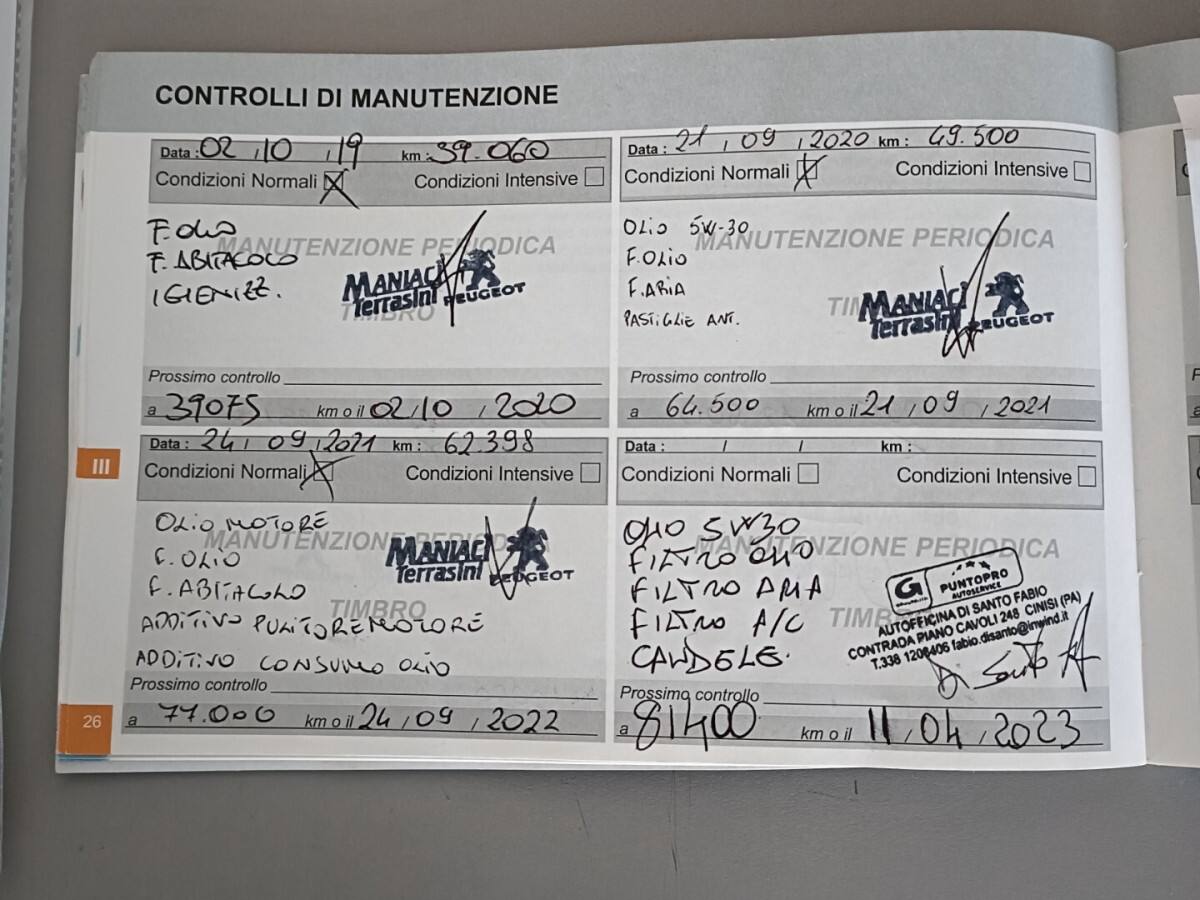 CONTROLLI DI MANUTENZIONE
Data : 02 / 10 / 19 km : 39.060
Condizioni Normali Condizioni Intensive
F. OLIO
MANUTENZIONE PERIODICA
F. ABITACOLO
IGIENIZZ.
MANIACI
Terrasini PEUGEOT
TIMBRO
Prossimo controllo
a 39075 km o il 02/10 / 2020
Data : 21 / 09 / 2020 km : 49.500
Condizioni Normali Condizioni Intensive
OLIO 5W-30
MANUTENZIONE PERIODICA
F. OLIO
F. ARIA
PASTIGLIE ANT.
TIM
MANIACI
Terrasini PEUGEOT
Prossimo controllo
a 64.500 km o il 21 / 09 / 2021
III
Data : 24 / 09 / 2021 km : 62.398
Condizioni Normali Condizioni Intensive
OLIO MOTORE
MANUTENZIONE
F. OLIO
F. ABITACOLO
MANIACI
Terrasini PEUGEOT
TIMBRO
ADDITIVO PULITORE MOTORE
ADDITIVO CONSUMO OLIO
Prossimo controllo
a 77.000 km o il 24 / 09 / 2022
Data : / / km :
Condizioni Normali Condizioni Intensive
OLIO 5W30
MANUTENZIONE PERIODICA
FILTRO OLIO
FILTRO ARIA
FILTRO A/C
CANDELE.
TIMB
G PUNTOPRO
AUTOSERVICE
AUTOFFICINA DI SANTO FABIO
CONTRADA PIANO CAVOLI 248 CINISI (PA)
T.338 1208406 fabio.disanto@inwind.it
Di Santo
Prossimo controllo
a 81400 km o il 11 / 04 / 2023
26